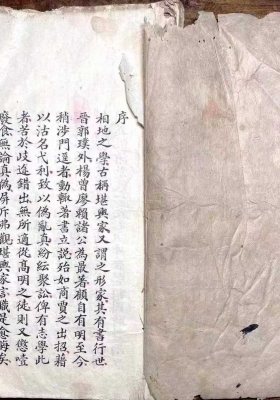 序
相地之學古稱堪輿家又謂之形家其有書行世
晉郭璞外楊曾廖賴諸公為最著顧自有明至今
稍涉門逕者動輒著書立說殆如商賈之出招藉
以沽名弋利致以偽亂真紛紜聚訟俾有志學此
者苦於歧途錯出無所適從高明之徒則又懲噎
廢食無論真偽屏斥弗觀堪輿家言職是愈晦矣